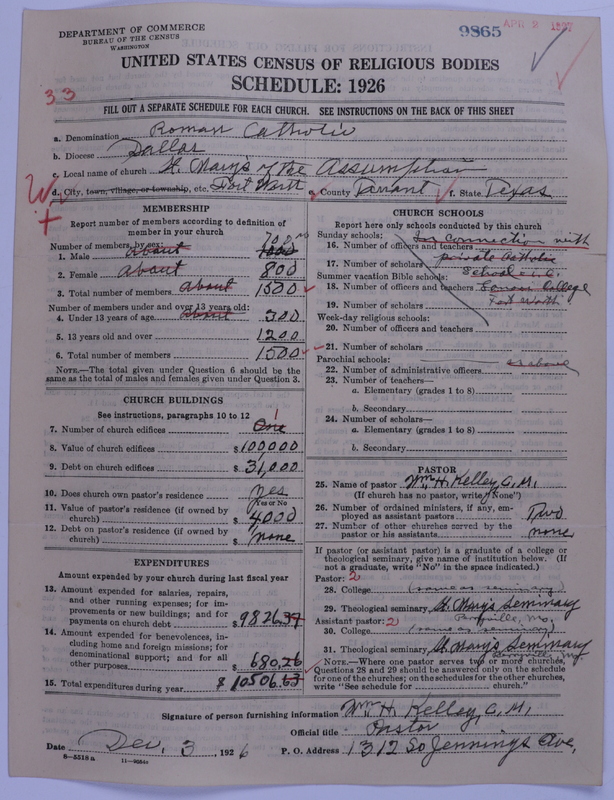 DEPARTMENT OF COMMERCE
BUREAU OF THE CENSUS
WASHINGTON
9865
APR 2 1927
UNITED STATES CENSUS OF RELIGIOUS BODIES
SCHEDULE: 1926
33
FILL OUT A SEPARATE SCHEDULE FOR EACH CHURCH. SEE INSTRUCTIONS ON THE BACK OF THIS SHEET
a. Denomination Roman Catholic
b. Diocese Dallas
c. Local name of church St. Mary's of the Assumption
d. City, town, village, or township, etc. Fort Worth e. County Tarrant f. State Texas
MEMBERSHIP
Report number of members according to definition of member in your church
Number of members, by sex:
1. Male about 700
2. Female about 800
3. Total number of members about 1500
Number of members under and over 13 years old:
4. Under 13 years of age about 300
5. 13 years old and over 1200
6. Total number of members 1500
NOTE.—The total given under Question 6 should be the same as the total of males and females given under Question 3.
CHURCH BUILDINGS
See instructions, paragraphs 10 to 12
7. Number of church edifices One 1
8. Value of church edifices $100000
9. Debt on church edifices $31,000
10. Does church own pastor's residence yes
Yes or No
11. Value of pastor's residence (if owned by church) $4000
12. Debt on pastor's residence (if owned by church) $none
EXPENDITURES
Amount expended by your church during last fiscal year
13. Amount expended for salaries, repairs, and other running expenses; for improvements or new buildings; and for payments on church debt $9826.37
14. Amount expended for benevolences, including home and foreign missions; for denominational support; and for all other purposes $680.26
15. Total expenditures during year $10506.63
CHURCH SCHOOLS
Report here only schools conducted by this church
Sunday schools: In connection with
16. Number of officers and teachers private Catholic
17. Number of scholars School
Summer vacation Bible schools:
18. Number of officers and teachers College
19. Number of scholars Fort Worth
Week-day religious schools:
20. Number of officers and teachers
21. Number of scholars
Parochial schools: as above
22. Number of administrative officers
23. Number of teachers—
a. Elementary (grades 1 to 8)
b. Secondary
24. Number of scholars—
a. Elementary (grades 1 to 8)
b. Secondary
PASTOR
25. Name of pastor Wm. H. Kelley, C.M.
(If church has no pastor, write "None")
26. Number of ordained ministers, if any, employed as assistant pastors Two
27. Number of other churches served by the pastor or his assistants none
If pastor (or assistant pastor) is a graduate of a college or theological seminary, give name of institution below. (If not a graduate, write "No" in the space indicated.)
Pastor: 2
28. College (same as seminary)
29. Theological seminary St. Mary's Seminary
Perryville, Mo.
Assistant pastor: 2
30. College (same as seminary)
31. Theological seminary St. Mary's Seminary
Perryville, Mo.
NOTE.—Where one pastor serves two or more churches, Questions 28 and 29 should be answered only on the schedule for one of the churches; on the schedules for the other churches, write "See schedule for church."
Signature of person furnishing information Wm. H. Kelley, C.M.
Official title Pastor
Date Dec. 3, 1926
P. O. Address 1312 So Jennings Ave,
8—5518 a